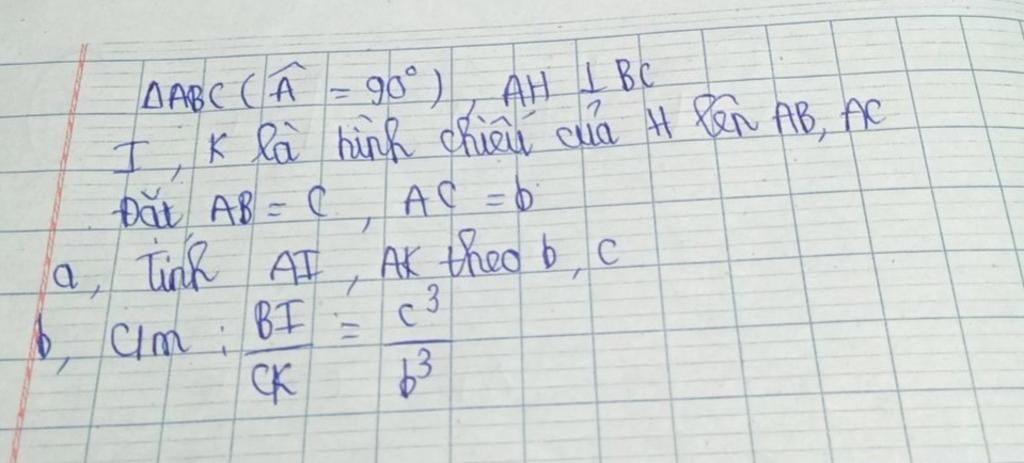 ΔABC ( Â = 90°), AH ⊥ BC
I, K là hình chiếu của H lên AB, AC
Đặt AB = c, AC = b
a, Tính AI, AK theo b, c
b, C/m : BI/CK = c³/b³